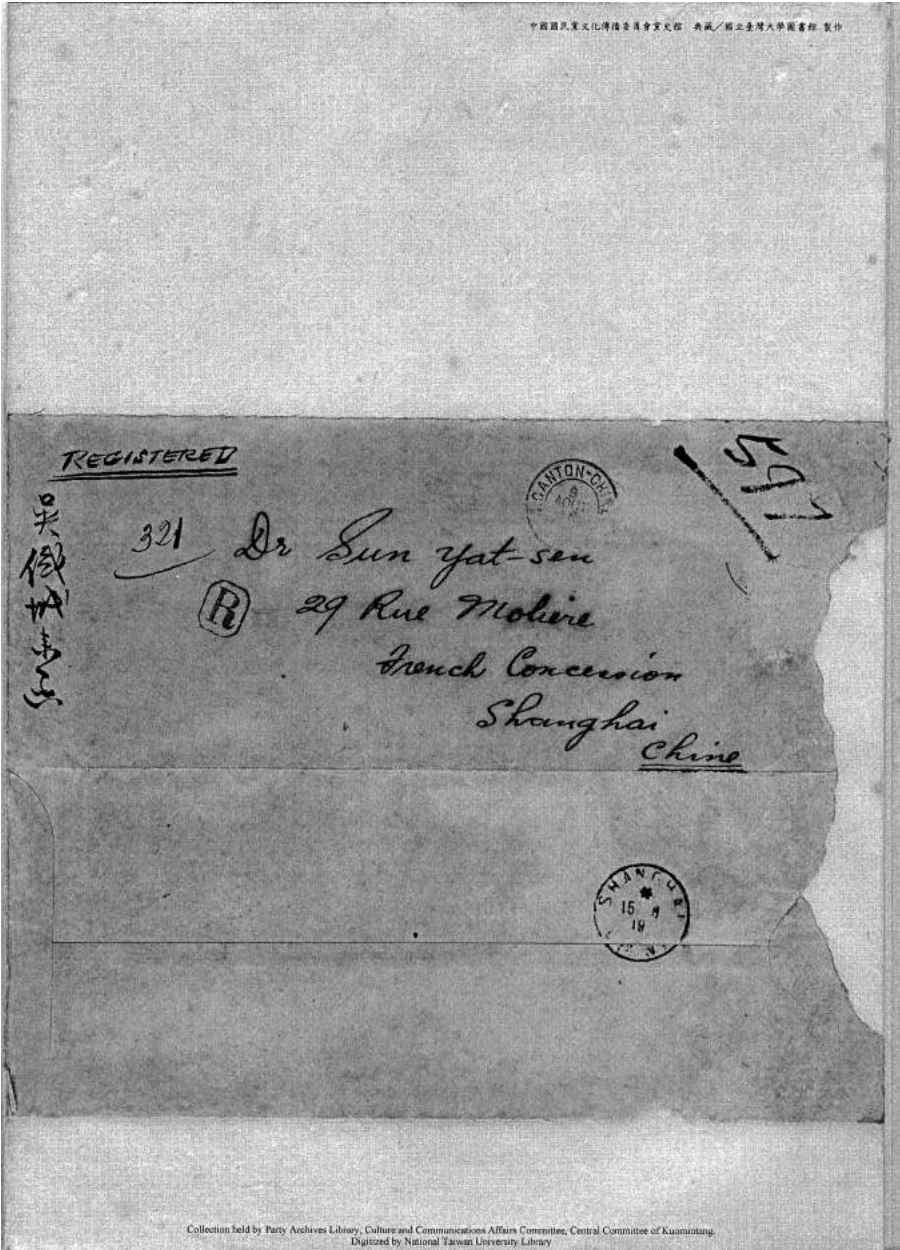 中國國民黨文化傳播委員會黨史館 典藏／國立臺灣大學圖書館 製作
REGISTERED
597
CANTON-CHINE
321
Dr Sun Yat-sen
R
29 Rue Moliere
French Concession
Shanghai
Chine
吳鐵城
SHANGHAI
15 8
19
Collection held by Party Archives Library, Culture and Communications Affairs Committee, Central Committee of Kuomintang.
Digitized by National Taiwan University Library